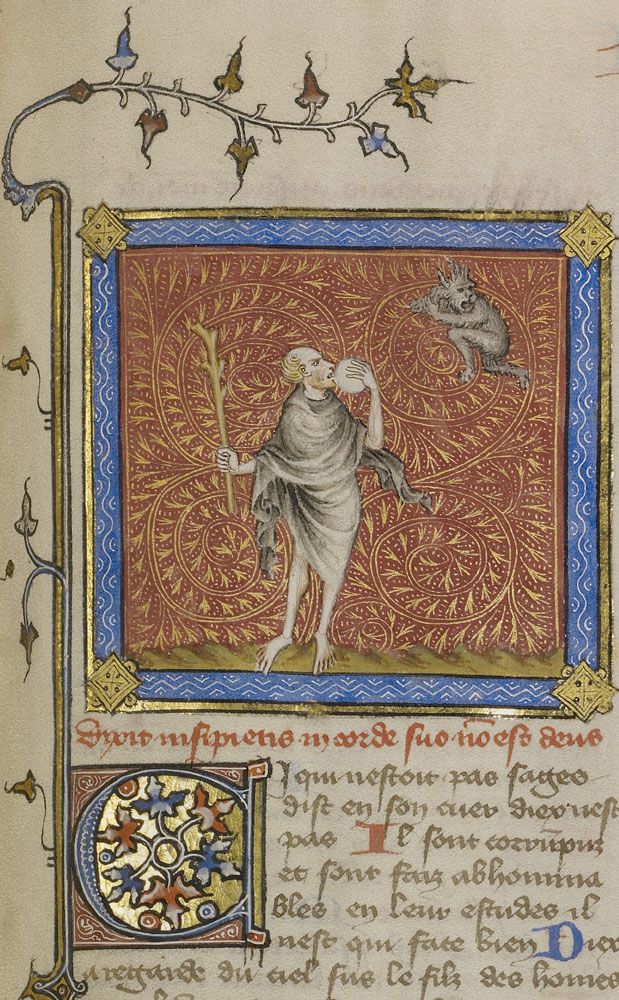 Dixit insipiens in corde suo nō est deus
Cil qui nestoit pas sages
dist en son cuer diex nest
pas Il sont corrūpuz
et sont faiz abhomina
bles en leur estudes il
nest qui face bien Diex
a regarde du ciel sus le filz des homes